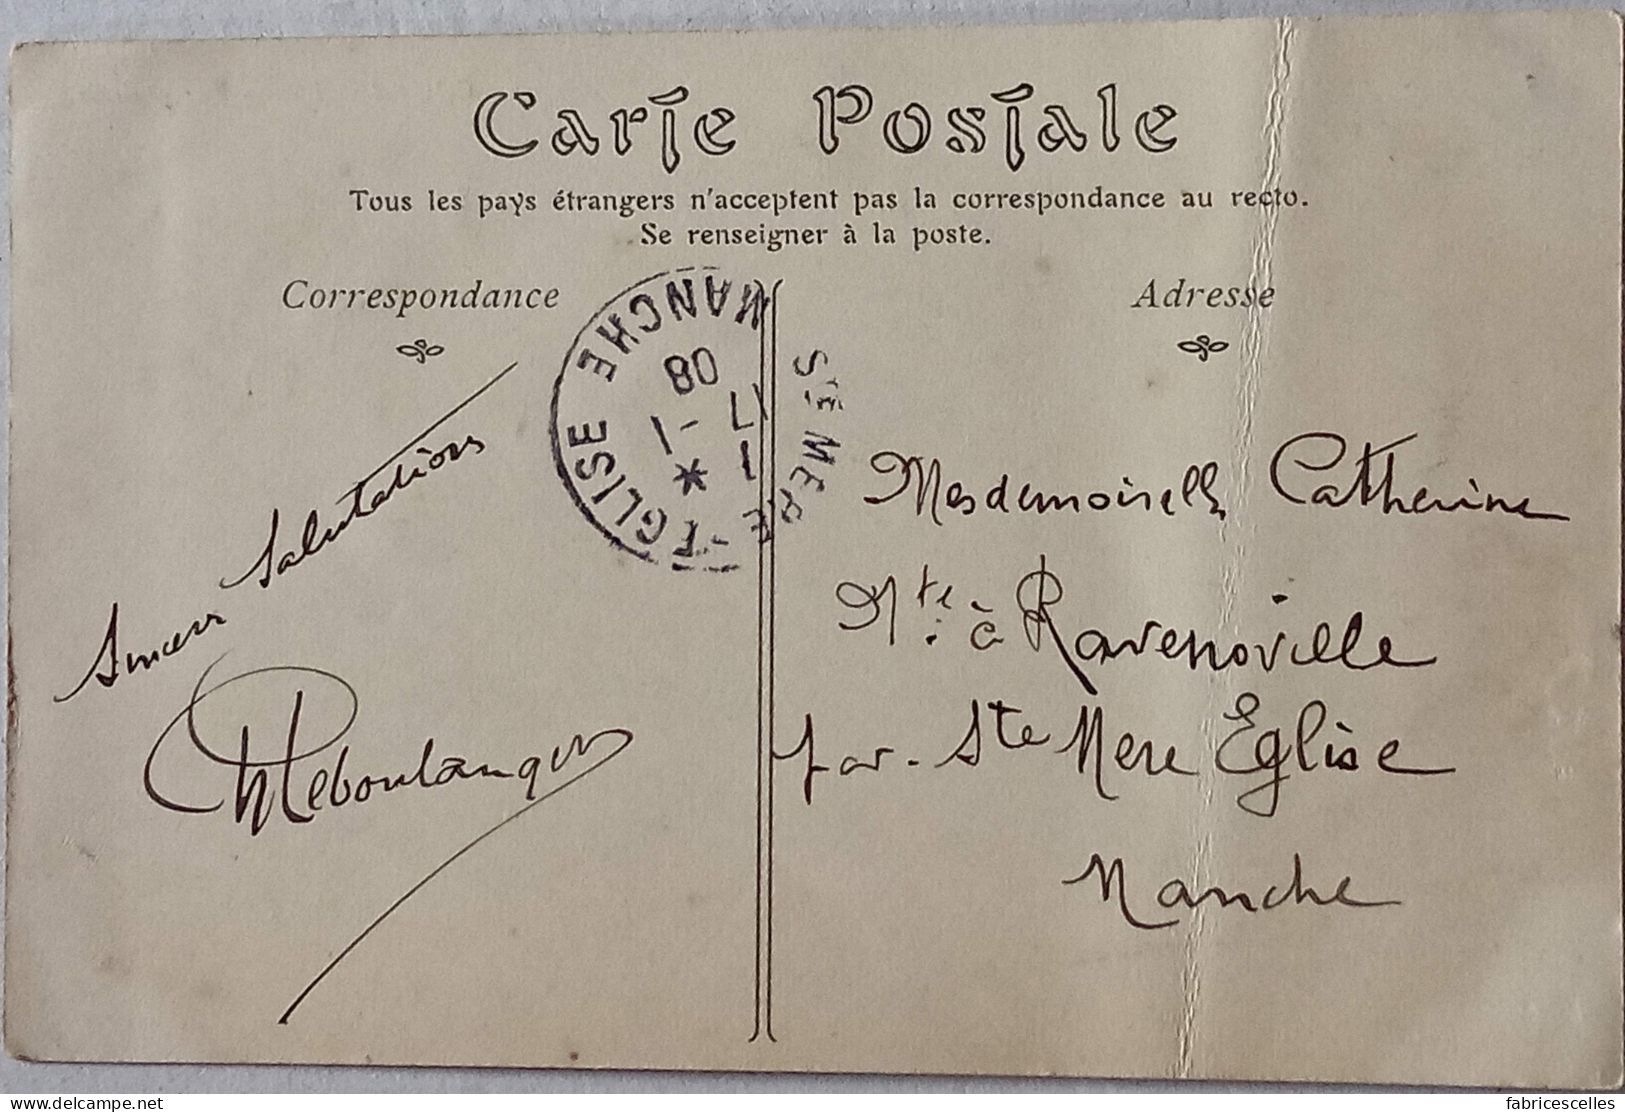 Carte Postale
Tous les pays étrangers n'acceptent pas la correspondance au recto.
Se renseigner à la poste.
Correspondance
Adresse
STE MÈRE-EGLISE MANCHE
1 *
17 - 1
08
Salutations
Mesdemoiselles Catherine
Nte. à Ravenoville
par. Ste Mere Eglise
Manche
www.delcampe.net
fabricescelles